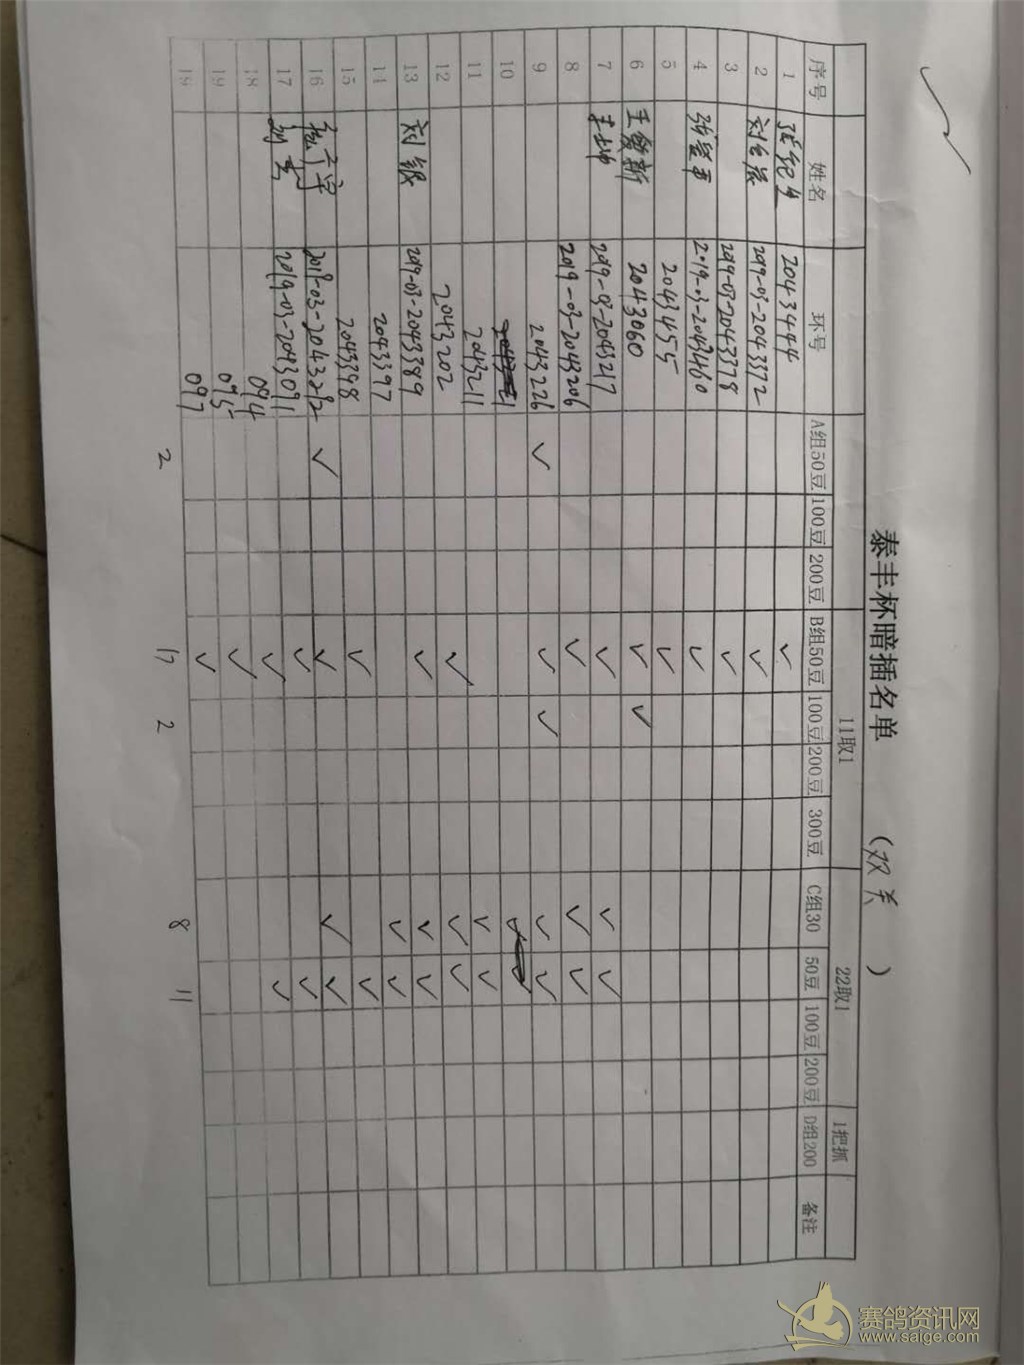 泰丰杯暗插名单 (双关)
11取1 22取1 1把抓
序号 姓名 环号 A组50豆 100豆 200豆 B组50豆 100豆 200豆 300豆 C组30 50豆 100豆 200豆 D组200 备注
1 2043444 ✓
2 2019-03-2043372 ✓
3 2019-03-2043378 ✓
4 2019-03-2043460 ✓
5 2043455 ✓
6 王俊新 2043060 ✓ ✓
7 2019-03-2043217 ✓ ✓ ✓
8 2019-03-2043206 ✓ ✓ ✓
9 2043226 ✓ ✓ ✓ ✓ ✓
10
11 2043211 ✓ ✓
12 2043202 ✓ ✓ ✓
13 刘银 2019-03-2043389 ✓ ✓ ✓
14 2043397 ✓ ✓
15 2043398 ✓ ✓
16 2019-03-2043292 ✓ ✓ ✓ ✓
17 2019-03-2043091 ✓ ✓
18 094 ✓
19 095 ✓
19 097 ✓
2 17 2 8 11
赛鸽资讯网
www.saige.com